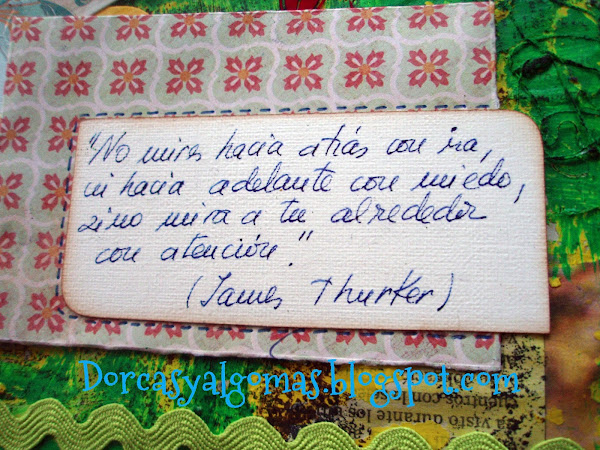 "No mires hacia atrás con ira,
ni hacia adelante con miedo,
sino mira a tu alrededor
con atención."
(James Thurker)
Dorcasyalgomas.blogspot.com
ha visto durante los
cuentros con